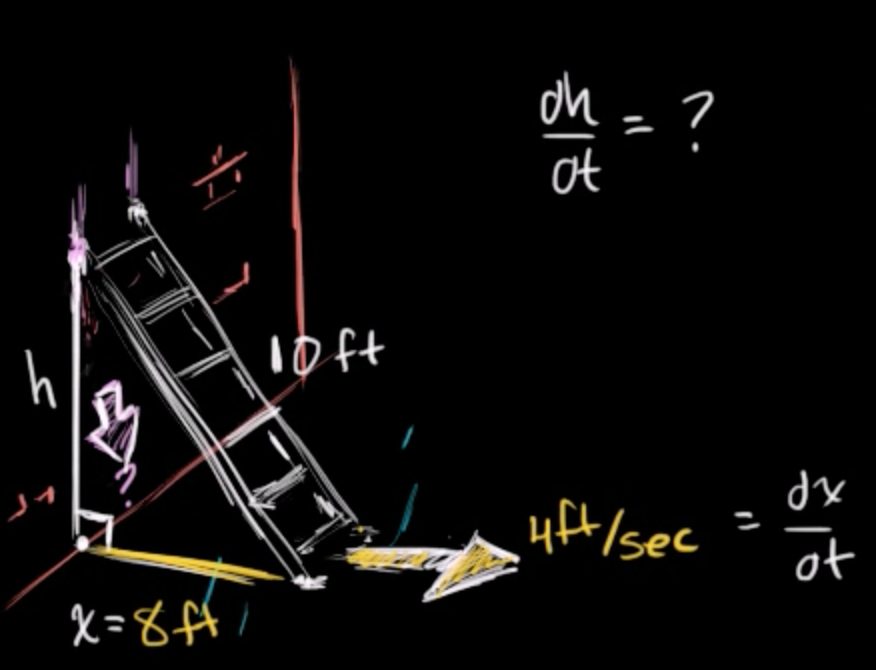 dh/dt = ?
10 ft
h
?
4ft/sec = dx/dt
x = 8 ft